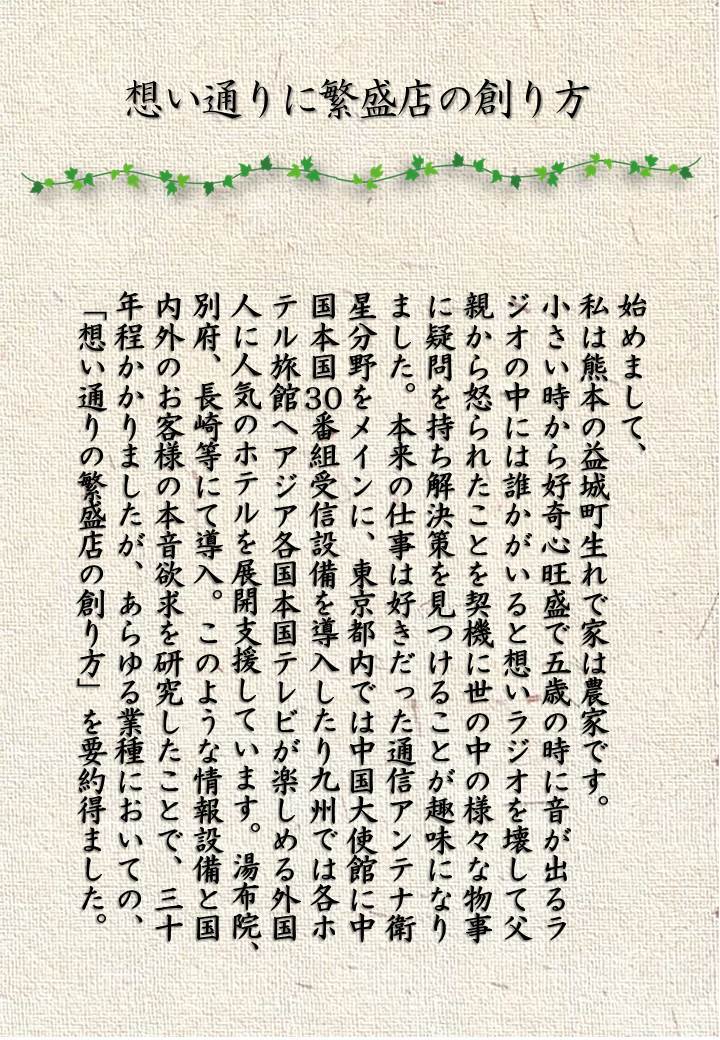 想い通りに繁盛店の創り方
始めまして、
私は熊本の益城町生れで家は農家です。
小さい時から好奇心旺盛で五歳の時に音が出るラ
ジオの中には誰かがいると想いラジオを壊して父
親から怒られたことを契機に世の中の様々な物事
に疑問を持ち解決策を見つけることが趣味になり
ました。本来の仕事は好きだった通信アンテナ衛
星分野をメインに、東京都内では中国大使館に中
国本国30番組受信設備を導入したり九州では各ホ
テル旅館へアジア各国本国テレビが楽しめる外国
人に人気のホテルを展開支援しています。湯布院、
別府、長崎等にて導入。このような情報設備と国
内外のお客様の本音欲求を研究したことで、三十
年程かかりましたが、あらゆる業種においての、
「想い通りの繁盛店の創り方」を要約得ました。